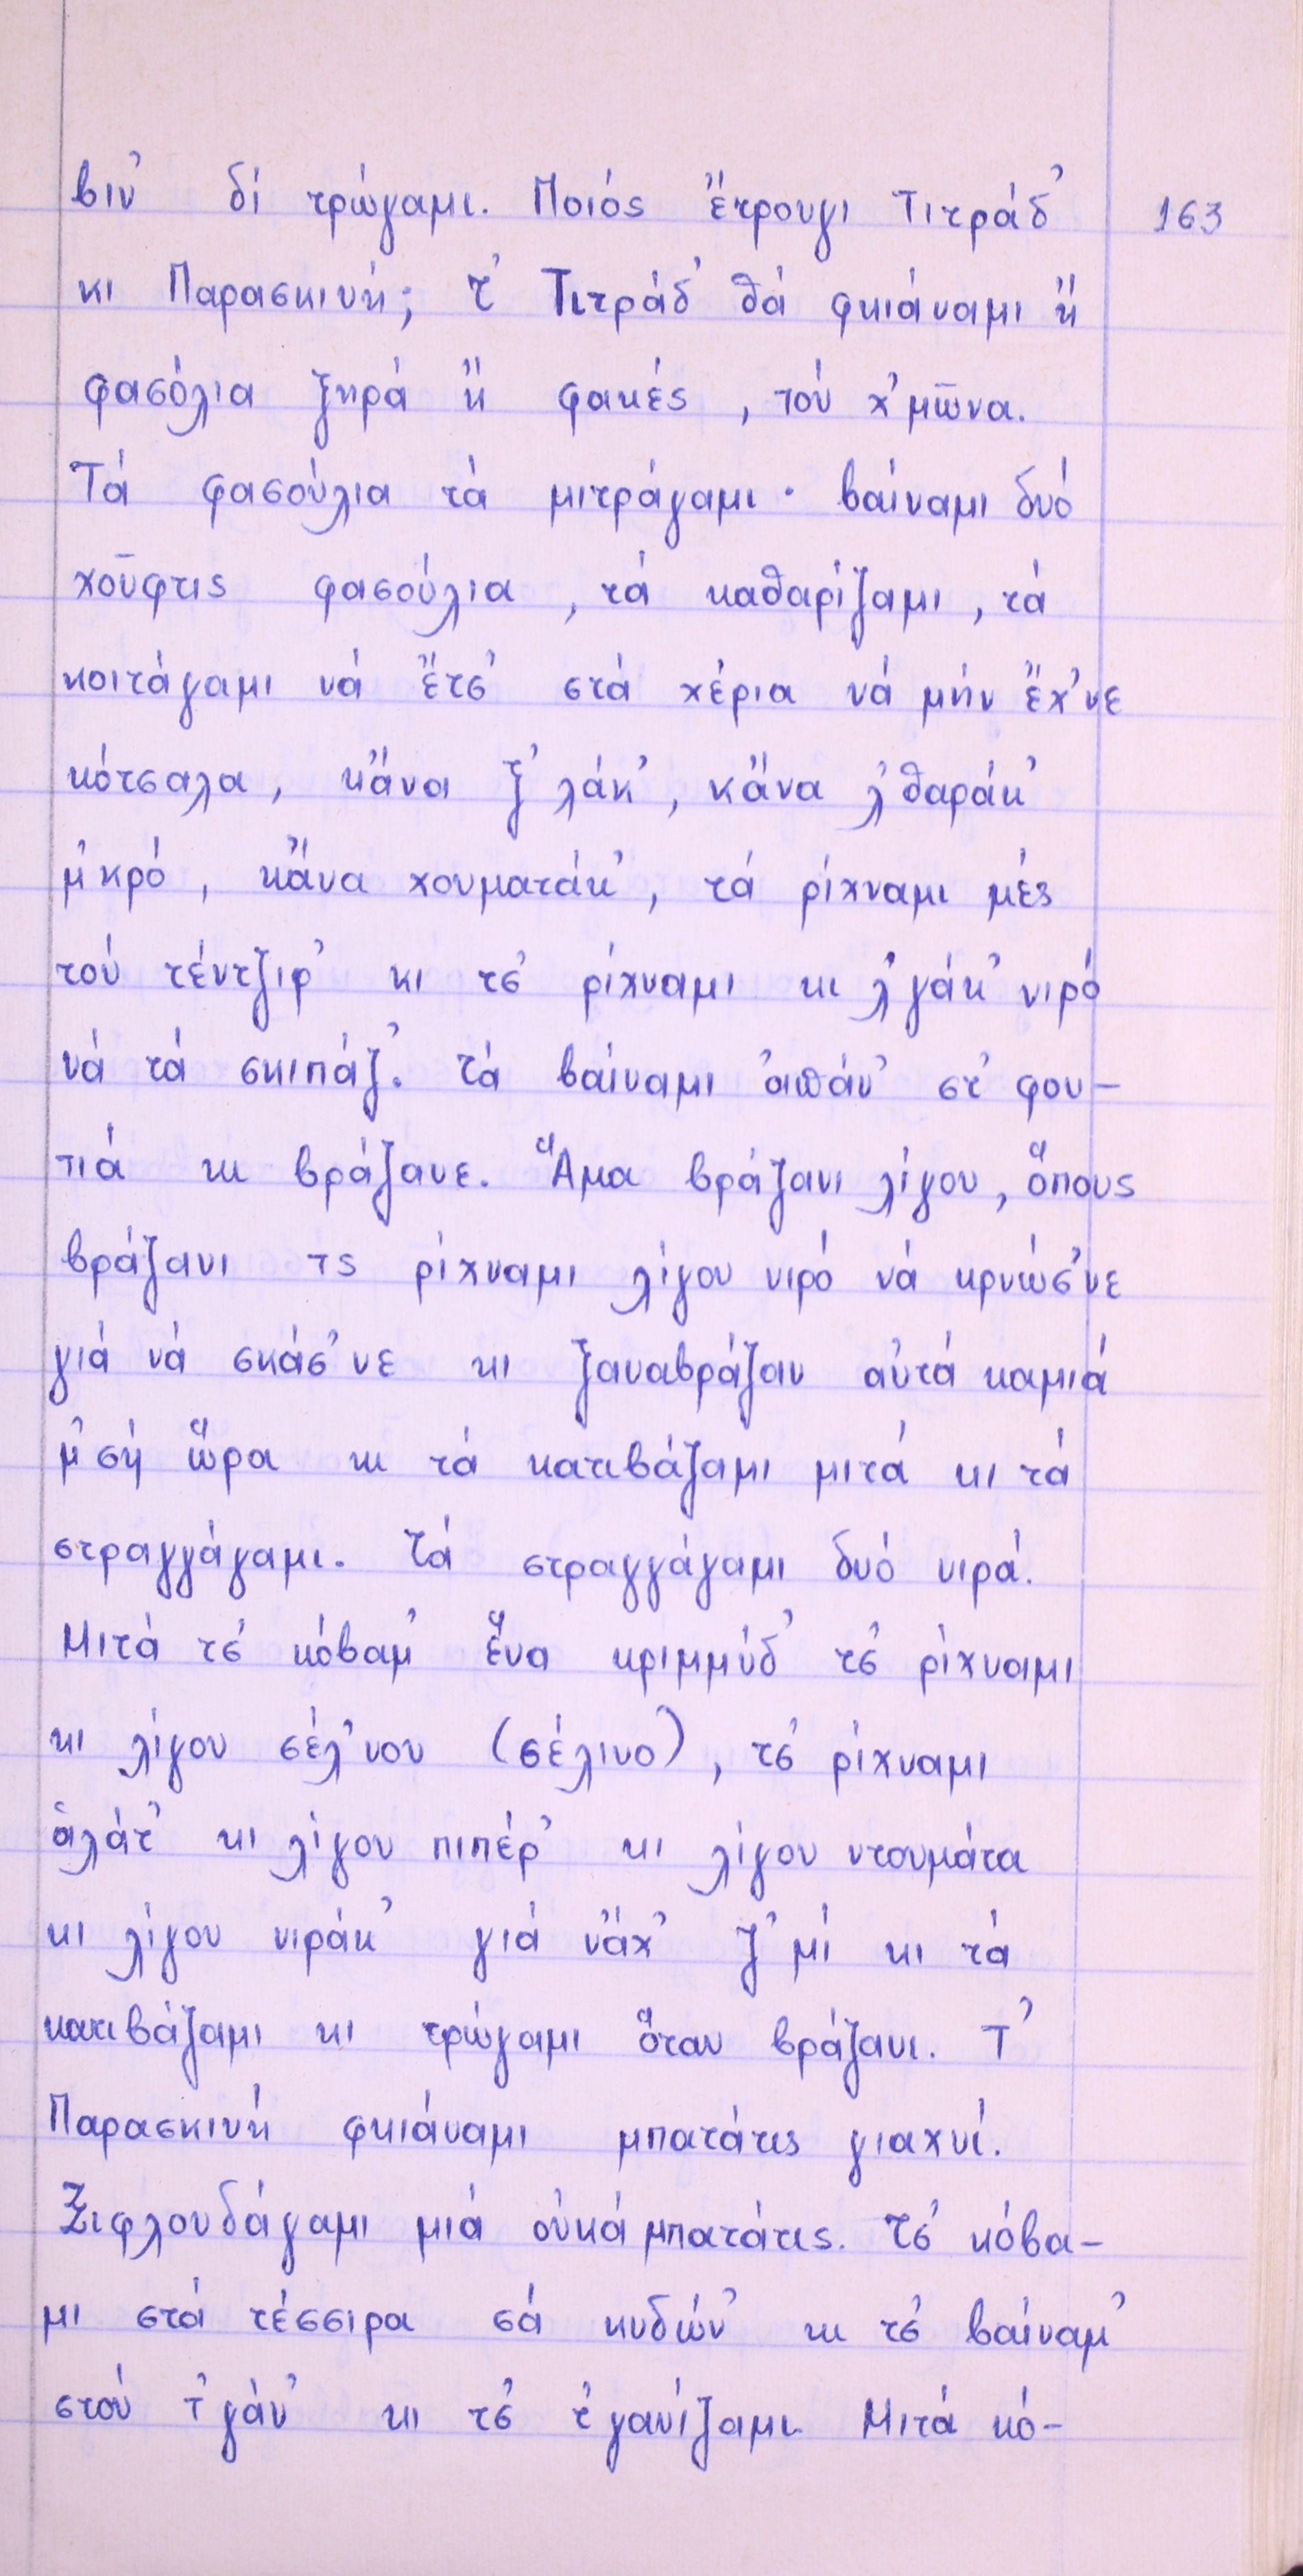 βιν' δί τρώγαμι. Ποιός ἔτρουγι Τιτράδ' 163
κι Παρασκιυή; τ' Τιτράδ' θά φκιάναμι ἤ
φασόλια ξηρά ἤ φακές, τού χ'μῶνα.
Τά φασούλια τά μιτράγαμι· βαίναμι δυό
χοῦφτις φασούλια, τά καθαρίζαμι, τά
κοιτάγαμι νά ἔτσ' στά χέρια νά μήν ἔχ'νε
κότσαλα, κἄνα ξ'λάκ', κἄνα λ'θαράκ'
μ'κρό, κἄνα χουματάκ', τά ρίχναμι μές
τού τέντζιρ' κι τσ' ρίχναμι κι λ'γάκ' νιρό
νά τά σκιπάζ'. Τά βαίναμι ἀπάν' στ' φου-
τιά κι βράζανε. Ἅμα βράζανι λίγου, ὅπους
βράζανι τς ρίχναμι λίγου νιρό νά κρυώσ'νε
γιά νά σκάσ'νε κι ξαναβράζαν αὐτά καμιά
μ'σή ὥρα κι τά κατιβάζαμι μιτά κι τά
στραγγάγαμι. Τά στραγγάγαμι δυό νιρά.
Μιτά τσ' κόβαμ' ἕνα κριμμύδ' τσ' ρίχναμι
κι λίγου σέλ'νου (σέλινο), τσ' ρίχναμι
ἁλάτ' κι λίγου πιπέρ' κι λίγου ντουμάτα
κι λίγου νιράκ' γιά νἄχ' ζ'μί κι τά
κατιβάζαμι κι τρώγαμι ὅταν βράζανι. Τ'
Παρασκιυή φκιάναμι μπατάτις γιαχνί.
Ξιφλουδάγαμι μιά οὐκά μπατάτις. Τσ' κόβα-
μι στά τέσσιρα σά κυδών' κι τσ' βαίναμ'
στού τ'γάν' κι τσ' τ'γανίζαμι. Μιτά κό-